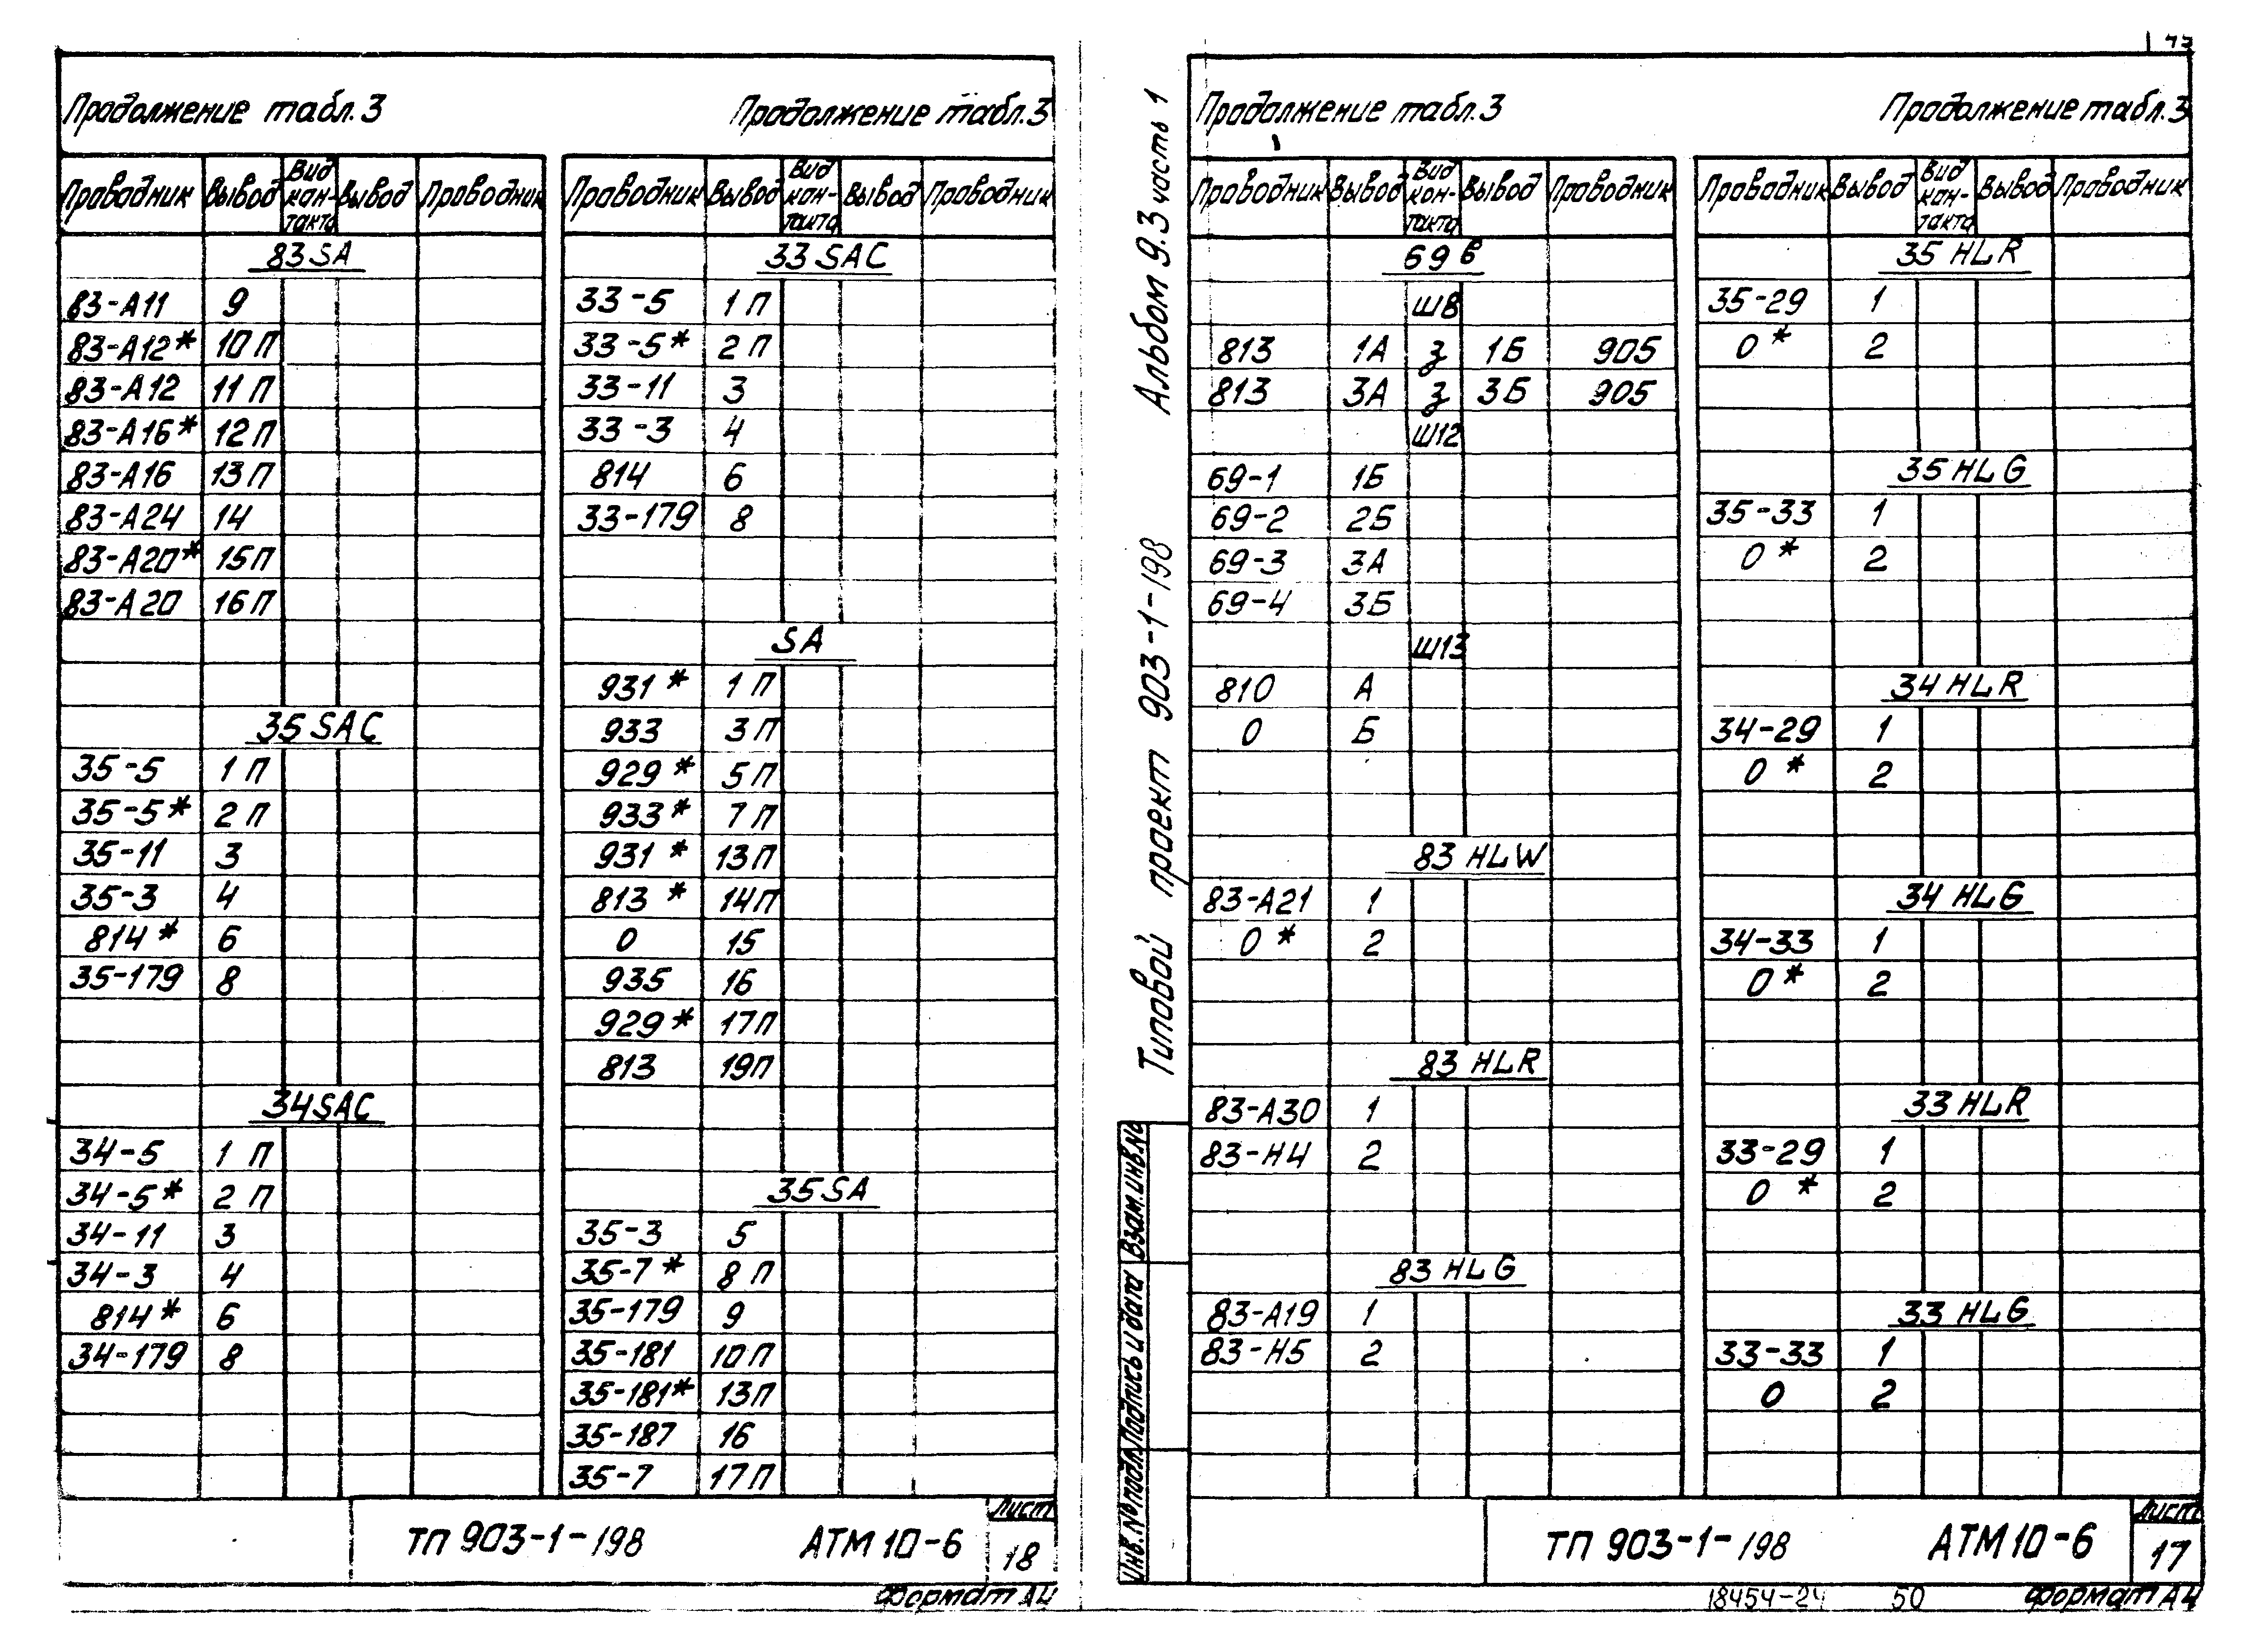 Продолжение табл.3
Продолжение табл.3
Проводник Вывод Вид кон-такта Вывод Проводник
83SA
83-А11 9
83-А12* 10П
83-А12 11П
83-А16* 12П
83-А16 13П
83-А24 14
83-А20* 15П
83-А20 16П
35SAC
35-5 1П
35-5* 2П
35-11 3
35-3 4
814* 6
35-179 8
34SAC
34-5 1П
34-5* 2П
34-11 3
34-3 4
814* 6
34-179 8
Проводник Вывод Вид кон-такта Вывод Проводник
33SAC
33-5 1П
33-5* 2П
33-11 3
33-3 4
814 6
33-179 8
SA
931* 1П
933 3П
929* 5П
933* 7П
931* 13П
813* 14П
0 15
935 16
929* 17П
813 19П
35SA
35-3 5
35-7* 8П
35-179 9
35-181 10П
35-181* 13П
35-187 16
35-7 17П
ТП 903-1-198 АТМ10-6
Лист
18
Формат А4
Типовой проект 903-1-198 Альбом 9.3 часть 1
Продолжение табл.3
Продолжение табл.3
Проводник Вывод Вид кон-такта Вывод Проводник
69в
Ш8
813 1А з 1Б 905
813 3А з 3Б 905
Ш12
69-1 1Б
69-2 2Б
69-3 3А
69-4 3Б
Ш13
810 А
0 Б
83HLW
83-А21 1
0* 2
83HLR
83-А30 1
83-Н4 2
83HLG
83-А19 1
83-Н5 2
Проводник Вывод Вид кон-такта Вывод Проводник
35HLR
35-29 1
0* 2
35HLG
35-33 1
0* 2
34HLR
34-29 1
0* 2
34HLG
34-33 1
0* 2
33HLR
33-29 1
0* 2
33HLG
33-33 1
0 2
Инв.№ подл. Подпись и дата Взам.инв.№
ТП 903-1-198 АТМ10-6
Лист
17
18454-24 50 Формат А4